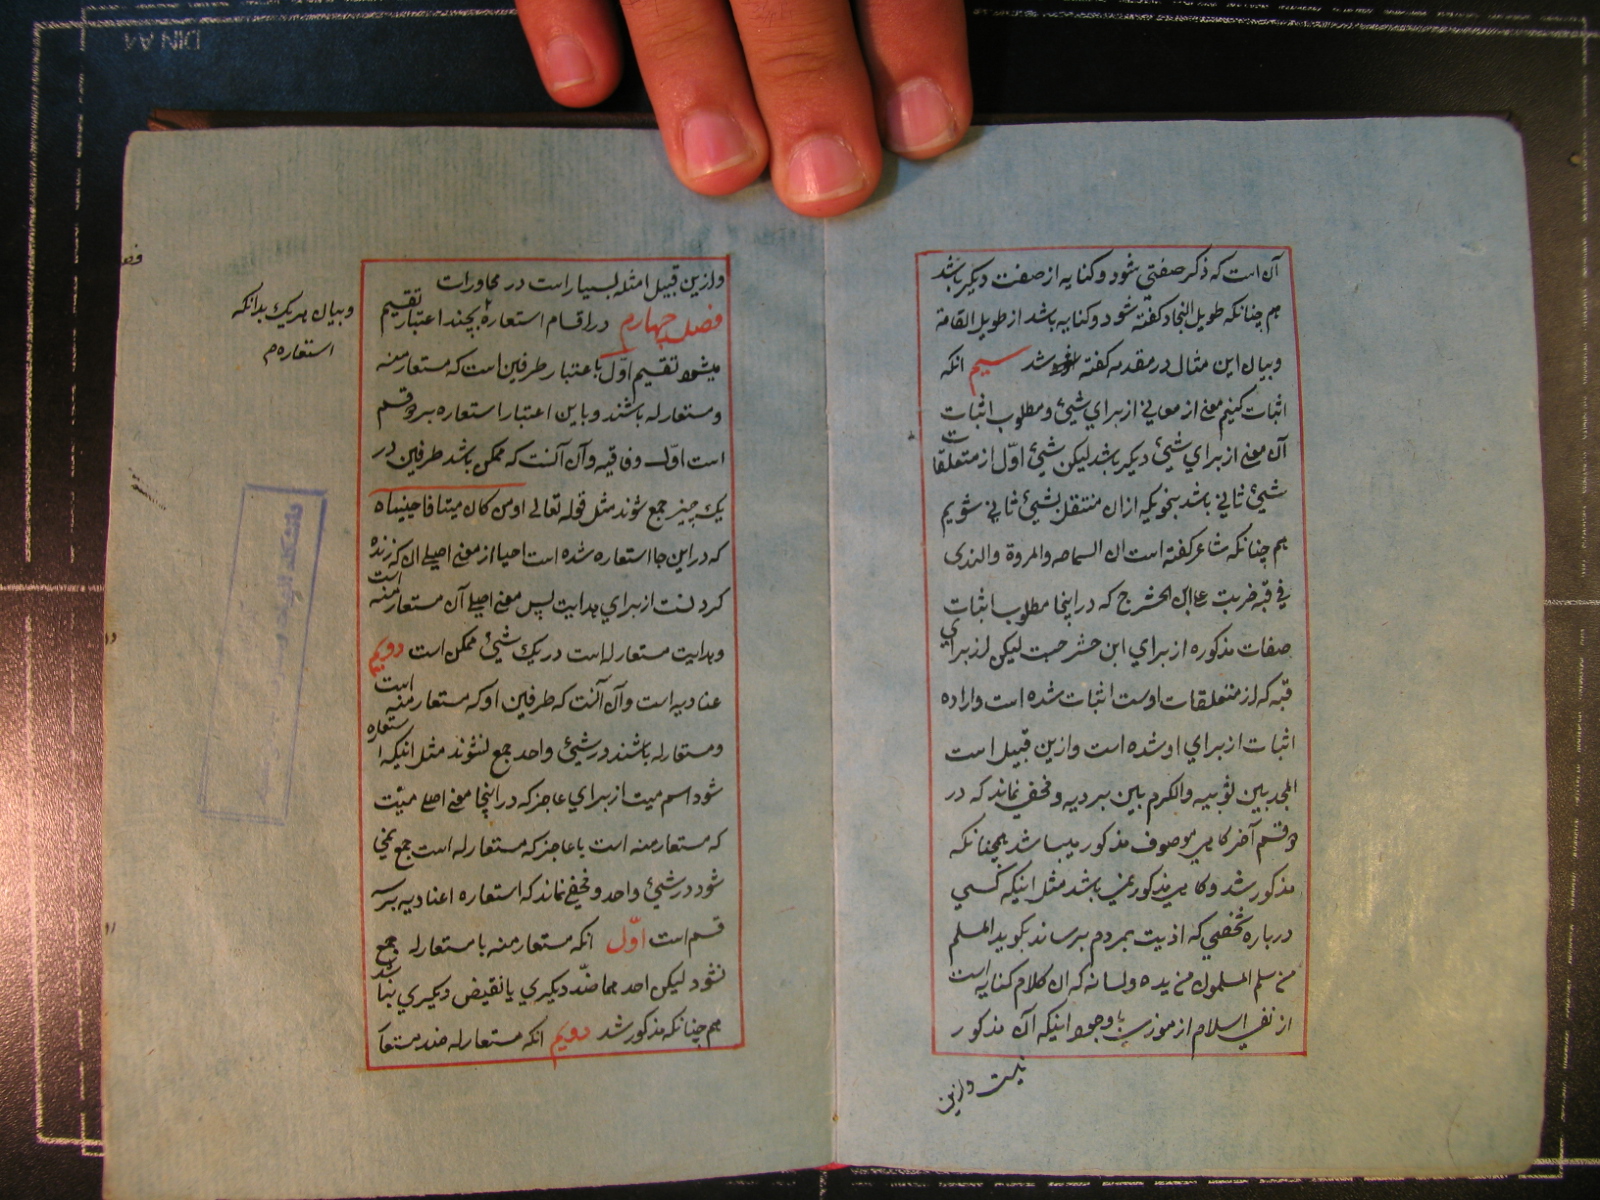 آن است که ذکر صفتی شود و کنایه از صفت دیکر باشد
هم چنانکه طویل النجاد کفته شود و کنایه باشد از طویل القامة
و بیان این مثال در مقدمه کفته شد سیم انکه
اثبات کنیم معنی از معانی از برای شیئ و مطلوب اثبات
آن معنی از برای شیئ دیکر باشد لیکن شیئ اوّل از متعلقات
شیئ ثانی باشد بنحویکه ازان منتقل بشیئ ثانی شویم
هم چنانکه شاعر کفته است ان السماحه والمروة والندی
فی قبه ضربت علی ابن الحشرج که در اینجا مطلوب اثبات
صفات مذکوره از برای ابن حشرجست لیکن از برای
قبّه که از متعلقات اوست اثبات شده است و اراده
اثبات از برای او شده است و ازین قبیل است
المجد بین ثوبیه والکرم بین بردیه و مخفی نماند که در
دو قسم آخر کاهی موصوف مذکور میباشد همچنانکه
مذکور شد و کاهی مذکور نمی باشد مثل اینکه کسی
درباره شخصی که اذیت بمردم برساند بکوید المسلم
من سلم المسلمون من یده و لسانه که ان کلام کنایه است
از نفی اسلام از موذی با وجود اینکه آن مذکور
نیست و ازین
و ازین قبیل امثله بسیار است در محاورات
فصل چهارم در اقسام استعاره بچند اعتبار تقسیم
میشود تقسیم اوّل باعتبار طرفین است که مستعار منه
و مستعار له باشند و باین اعتبار استعاره بر دو قسم
است اوّل وفاقیه و آن آنست که ممکن باشد طرفین در
یک چیز جمع شوند مثل قوله تعالی او من کان میتا فاحییناه
که در این جا استعاره شده است احیا از معنی اصلی ان که زنده
کردنست از برای هدایت پس معنی اصلی آن مستعار منه است
و هدایت مستعار له است در یک شیئ ممکن است دویم
عنادیه است و آن آنست که طرفین او که مستعار منه است
و مستعار له باشند در شیئ واحد جمع نشوند مثل اینکه استعاره
شود اسم میت از برای عاجز که در اینجا معنی اصلی میّت
که مستعار منه است با عاجز که مستعار له است جمع نمی
شود در شیئ واحد و مخفی نماند که استعاره اعنادیه بر سه
قسم است اوّل انکه مستعار منه با مستعار له جمع
نشود لیکن احدهما ضدّ دیکری یا نقیض دیکری نباشد
هم چنانکه مذکور شد دویم انکه مستعار له ضد مستعا
و بیان هریک بدانکه
استعاره م